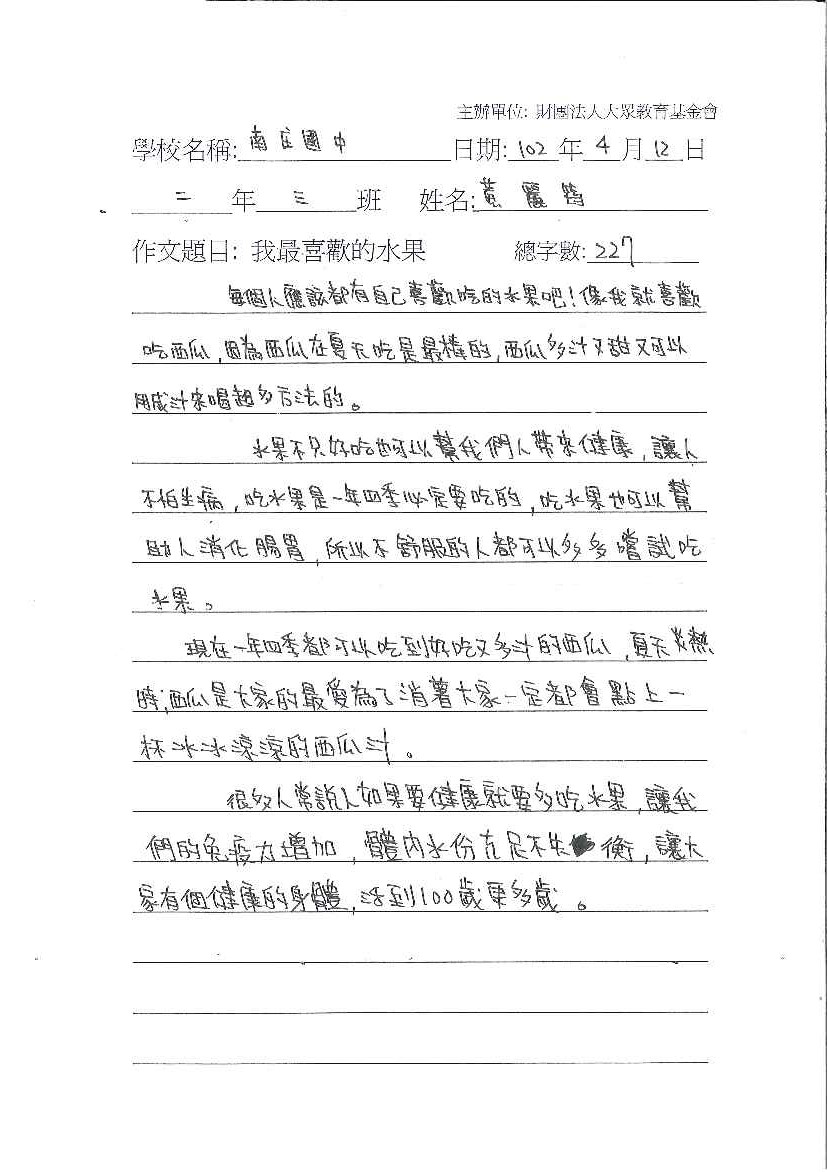 主辦單位: 財團法人大眾教育基金會
學校名稱: 南庄國中 日期: 102 年 4 月 12 日
二 年 三 班 姓名: 黃麗筠
作文題目: 我最喜歡的水果 總字數: 227
每個人應該都有自己喜歡吃的水果吧!像我就喜歡
吃西瓜,因為西瓜在夏天吃是最棒的,西瓜多汁又甜又可以
用成汁來喝超多方法的。
水果不只好吃也可以幫我們人帶來健康,讓人
不怕生病,吃水果是一年四季必定要吃的,吃水果也可以幫
助人消化腸胃,所以不舒服的人都可以多多嚐試吃
水果。
現在一年四季都可以吃到好吃又多汁的西瓜,夏天炎熱
時,西瓜是大家的最愛為了消薯大家一定都會點上一
杯冰冰涼涼的西瓜汁。
很多人常說人如果要健康就要多吃水果,讓我
們的免疫力增加,體內水份充足不失衡,讓大
家有個健康的身體,活到100歲更多歲。